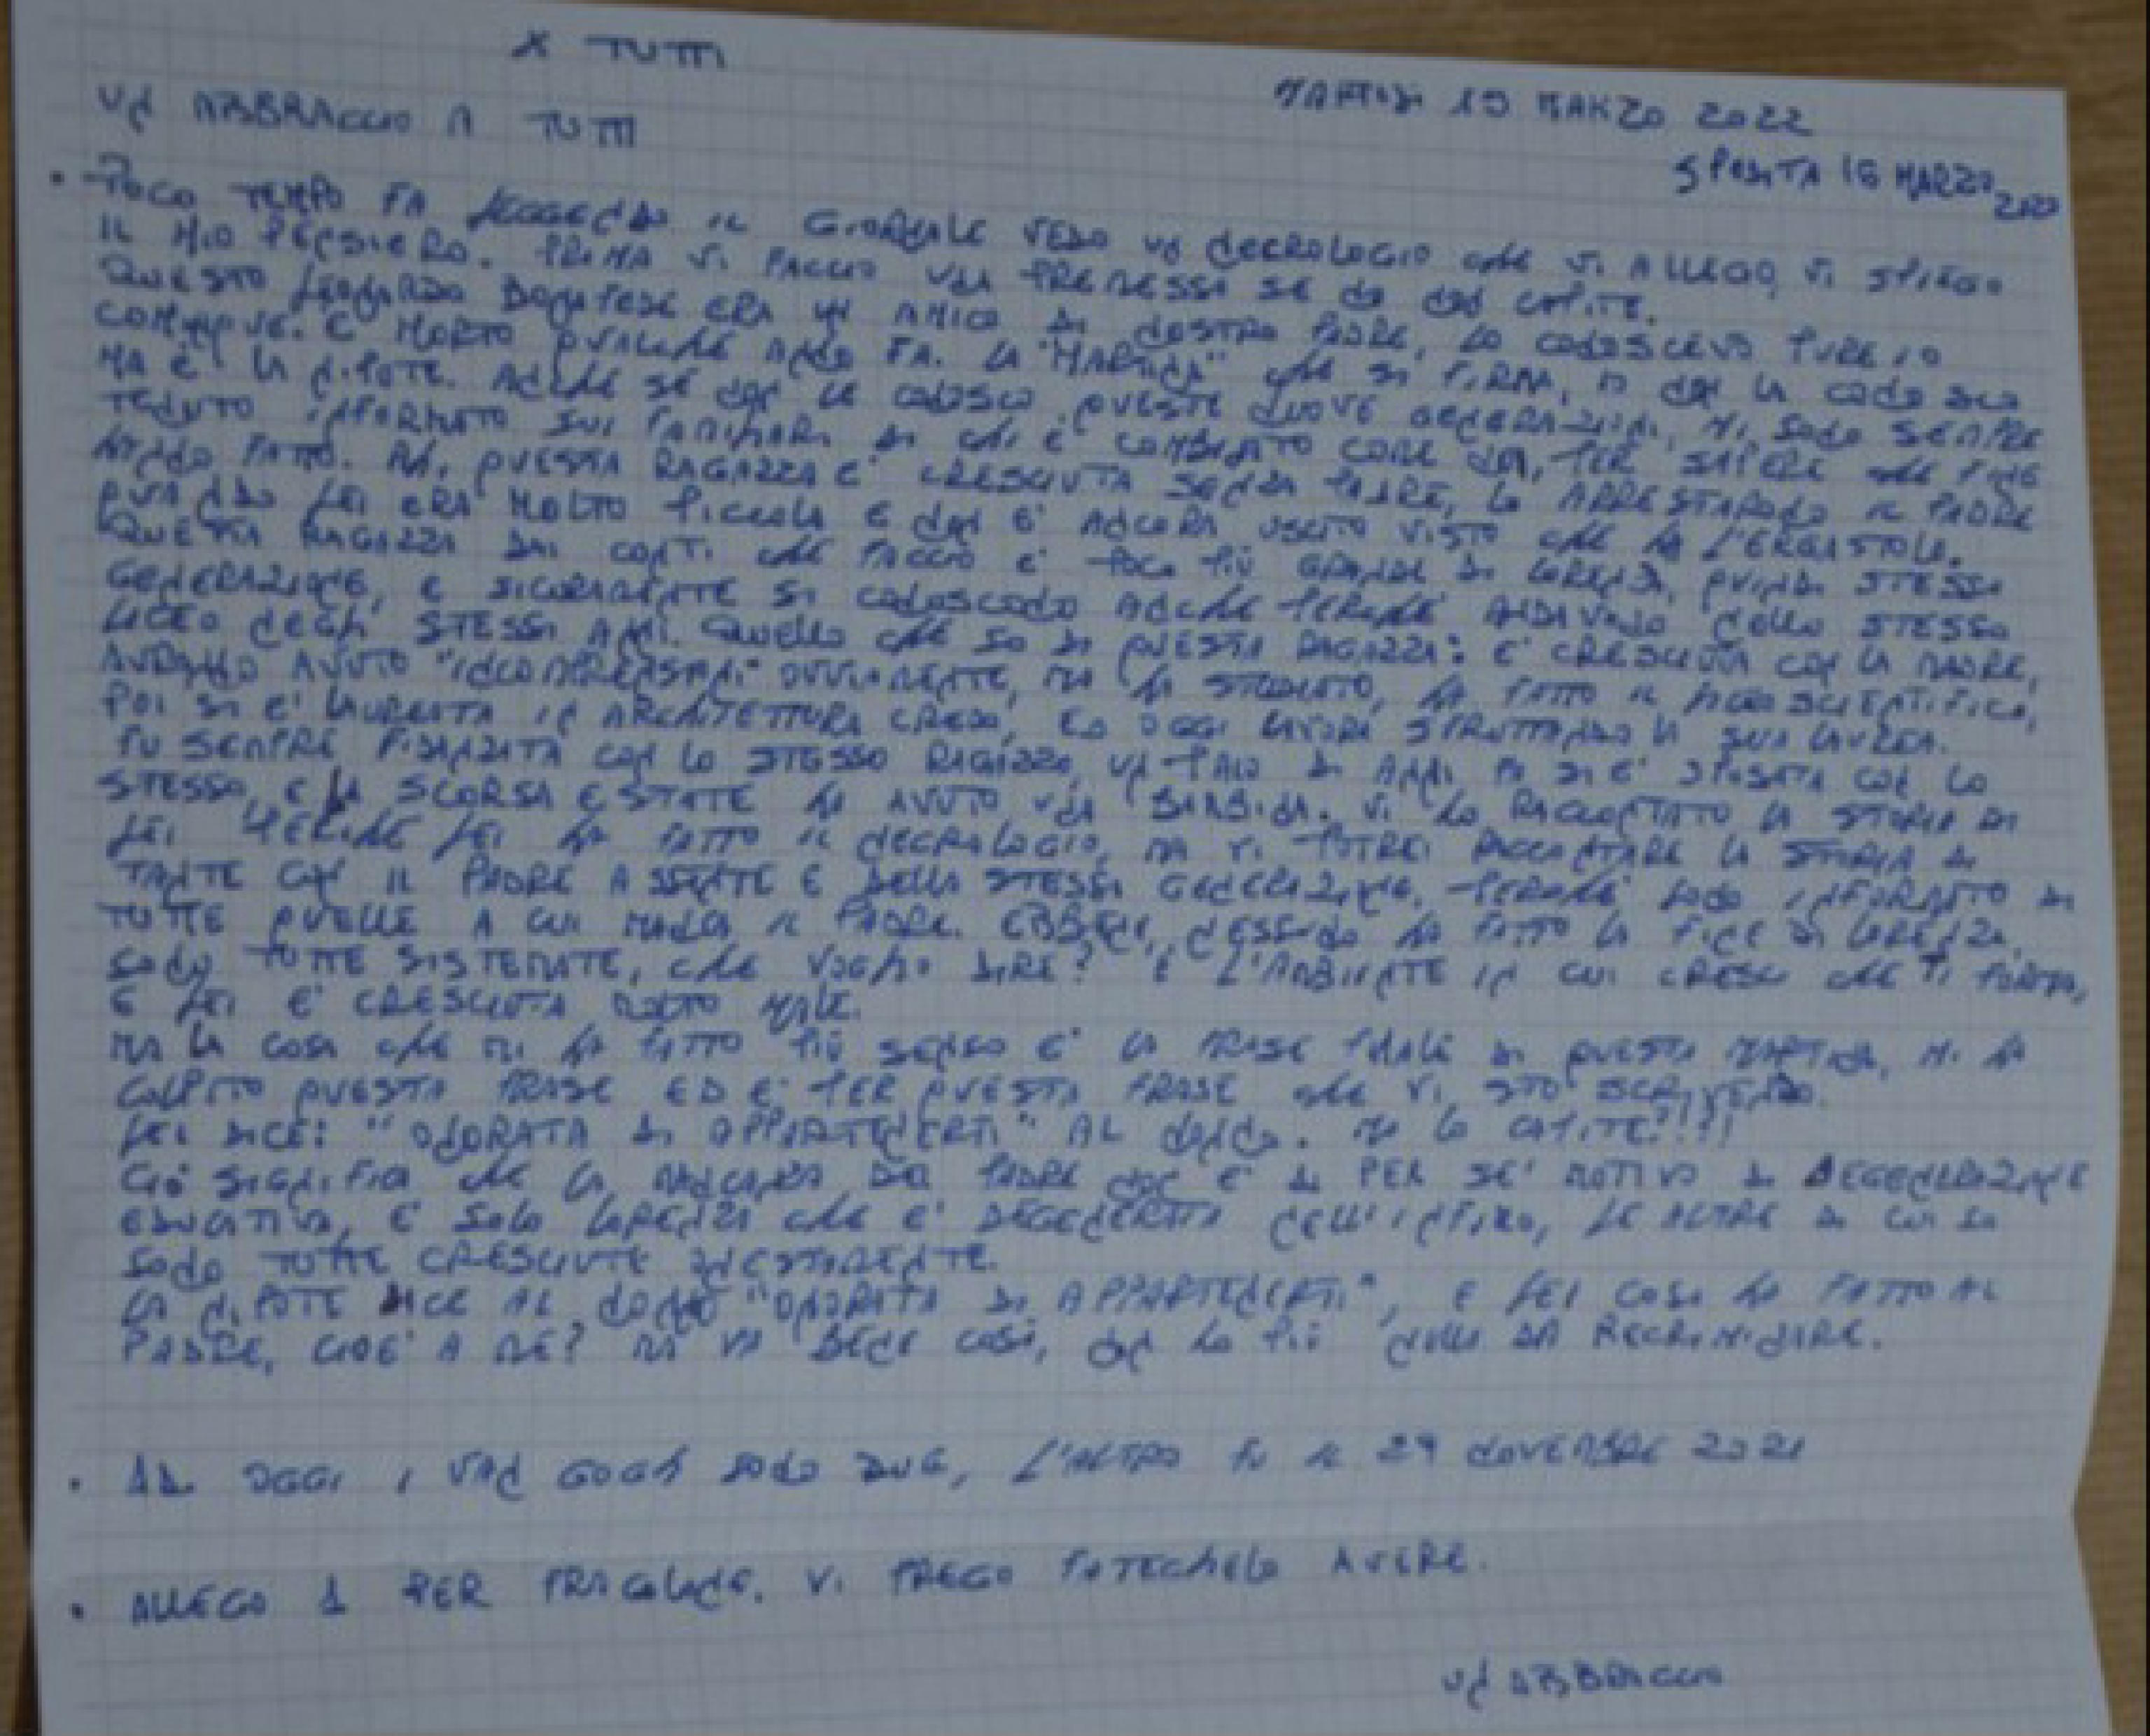 X TUTTI
MARTEDI 15 MARZO 2022
UN ABBRACCIO A TUTTI
SPEDITA 16 MARZO 2022
• POCO TEMPO FA LEGGENDO IL GIORNALE VEDO UN NECROLOGIO CHE VI ALLEGO, VI SPIEGO
IL MIO PENSIERO. PRIMA VI FACCIO UNA PREMESSA SE NO NON CAPITE.
QUESTO LEONARDO BONAFEDE ERA UN AMICO DI NOSTRO PADRE, LO CONOSCEVO PURE IO
COMUNQUE. E' MORTO QUALCHE ANNO FA. LA "MARTINA" CHE SI FIRMA, IO NON LA CONOSCO
MA E' LA NIPOTE. ANCHE SE NON LE CONOSCO QUESTE NUOVE GENERAZIONI, MI SONO SEMPRE
TENUTO INFORMATO SUI FAMILIARI DI CHI E' COMBINATO COME NOI, PER SAPERE CHE FINE
HANNO FATTO. QUESTA RAGAZZA E' CRESCIUTA SENZA PADRE, LO ARRESTARONO IL PADRE
QUANDO LEI ERA MOLTO PICCOLA E NON E' ANCORA USCITO VISTO CHE HA L'ERGASTOLO.
QUESTA RAGAZZA DAI CONTI CHE FACCIO E' POCO PIÙ GRANDE DI LORENZA, QUINDI STESSA
GENERAZIONE, E SICURAMENTE SI CONOSCONO ANCHE PERCHE' ANDAVANO NELLO STESSO
LICEO NEGLI STESSI ANNI. QUELLO CHE SO DI QUESTA RAGAZZA: E' CRESCIUTA CON LA MADRE,
AVRANNO AVUTO "INCOMPRENSIONI" OVVIAMENTE, MA HA STUDIATO, HA FATTO IL LICEO SCIENTIFICO,
POI SI E' LAUREATA IN ARCHITETTURA CREDO, ED OGGI LAVORA SFRUTTANDO LA SUA LAUREA.
FU SEMPRE FIDANZATA CON LO STESSO RAGAZZO, UN PAIO DI ANNI FA SI E' SPOSATA CON LO
STESSO, E LA SCORSA ESTATE HA AVUTO UNA BAMBINA. VI HO RACCONTATO LA STORIA DI
LEI PERCHE' LEI HA FATTO IL NECROLOGIO, MA VI POTREI RACCONTARE LA STORIA DI
TANTE CON IL PADRE ASSENTE E DELLA STESSA GENERAZIONE, PERCHE' SONO INFORMATO DI
TUTTE QUELLE A CUI MANCA IL PADRE. EBBENE, NESSUNA HA FATTO LA FINE DI LORENZA,
SONO TUTTE SISTEMATE, CHE VOGLIO DIRE? E' L'AMBIENTE IN CUI CRESCI CHE TI FORMA,
E LEI E' CRESCIUTA MOLTO MALE.
MA LA COSA CHE MI HA FATTO PIÙ SENSO E' LA FRASE FINALE DI QUESTA MARTINA, MI HA
COLPITO QUESTA FRASE ED E' PER QUESTA FRASE CHE VI STO SCRIVENDO.
LEI DICE: "ONORATA DI APPARTENERTI" AL NONNO. MA LO CAPITE?!!!
CIÒ SIGNIFICA CHE LA MANCANZA DEL PADRE NON E' DI PER SE' MOTIVO DI DEGENERAZIONE
EDUCATIVA, E' SOLO LORENZA CHE E' DEGENERATA NELL'INFIMO, LE ALTRE DI CUI SO
SONO TUTTE CRESCIUTE ONESTAMENTE.
LA NIPOTE DICE AL NONNO "ONORATA DI APPARTENERTI", E LEI COSA HA FATTO AL
PADRE, CIOE' A ME? MA VA BENE COSÌ, NON HO PIÙ NULLA DA RECRIMINARE.
• AD OGGI I VAN GOGH SONO DUE, L'ALTRO FU IL 29 NOVEMBRE 2021
• ALLEGO 1 PER FRAGOLONE. VI PREGO FATECHELO AVERE.
UN ABBRACCIO